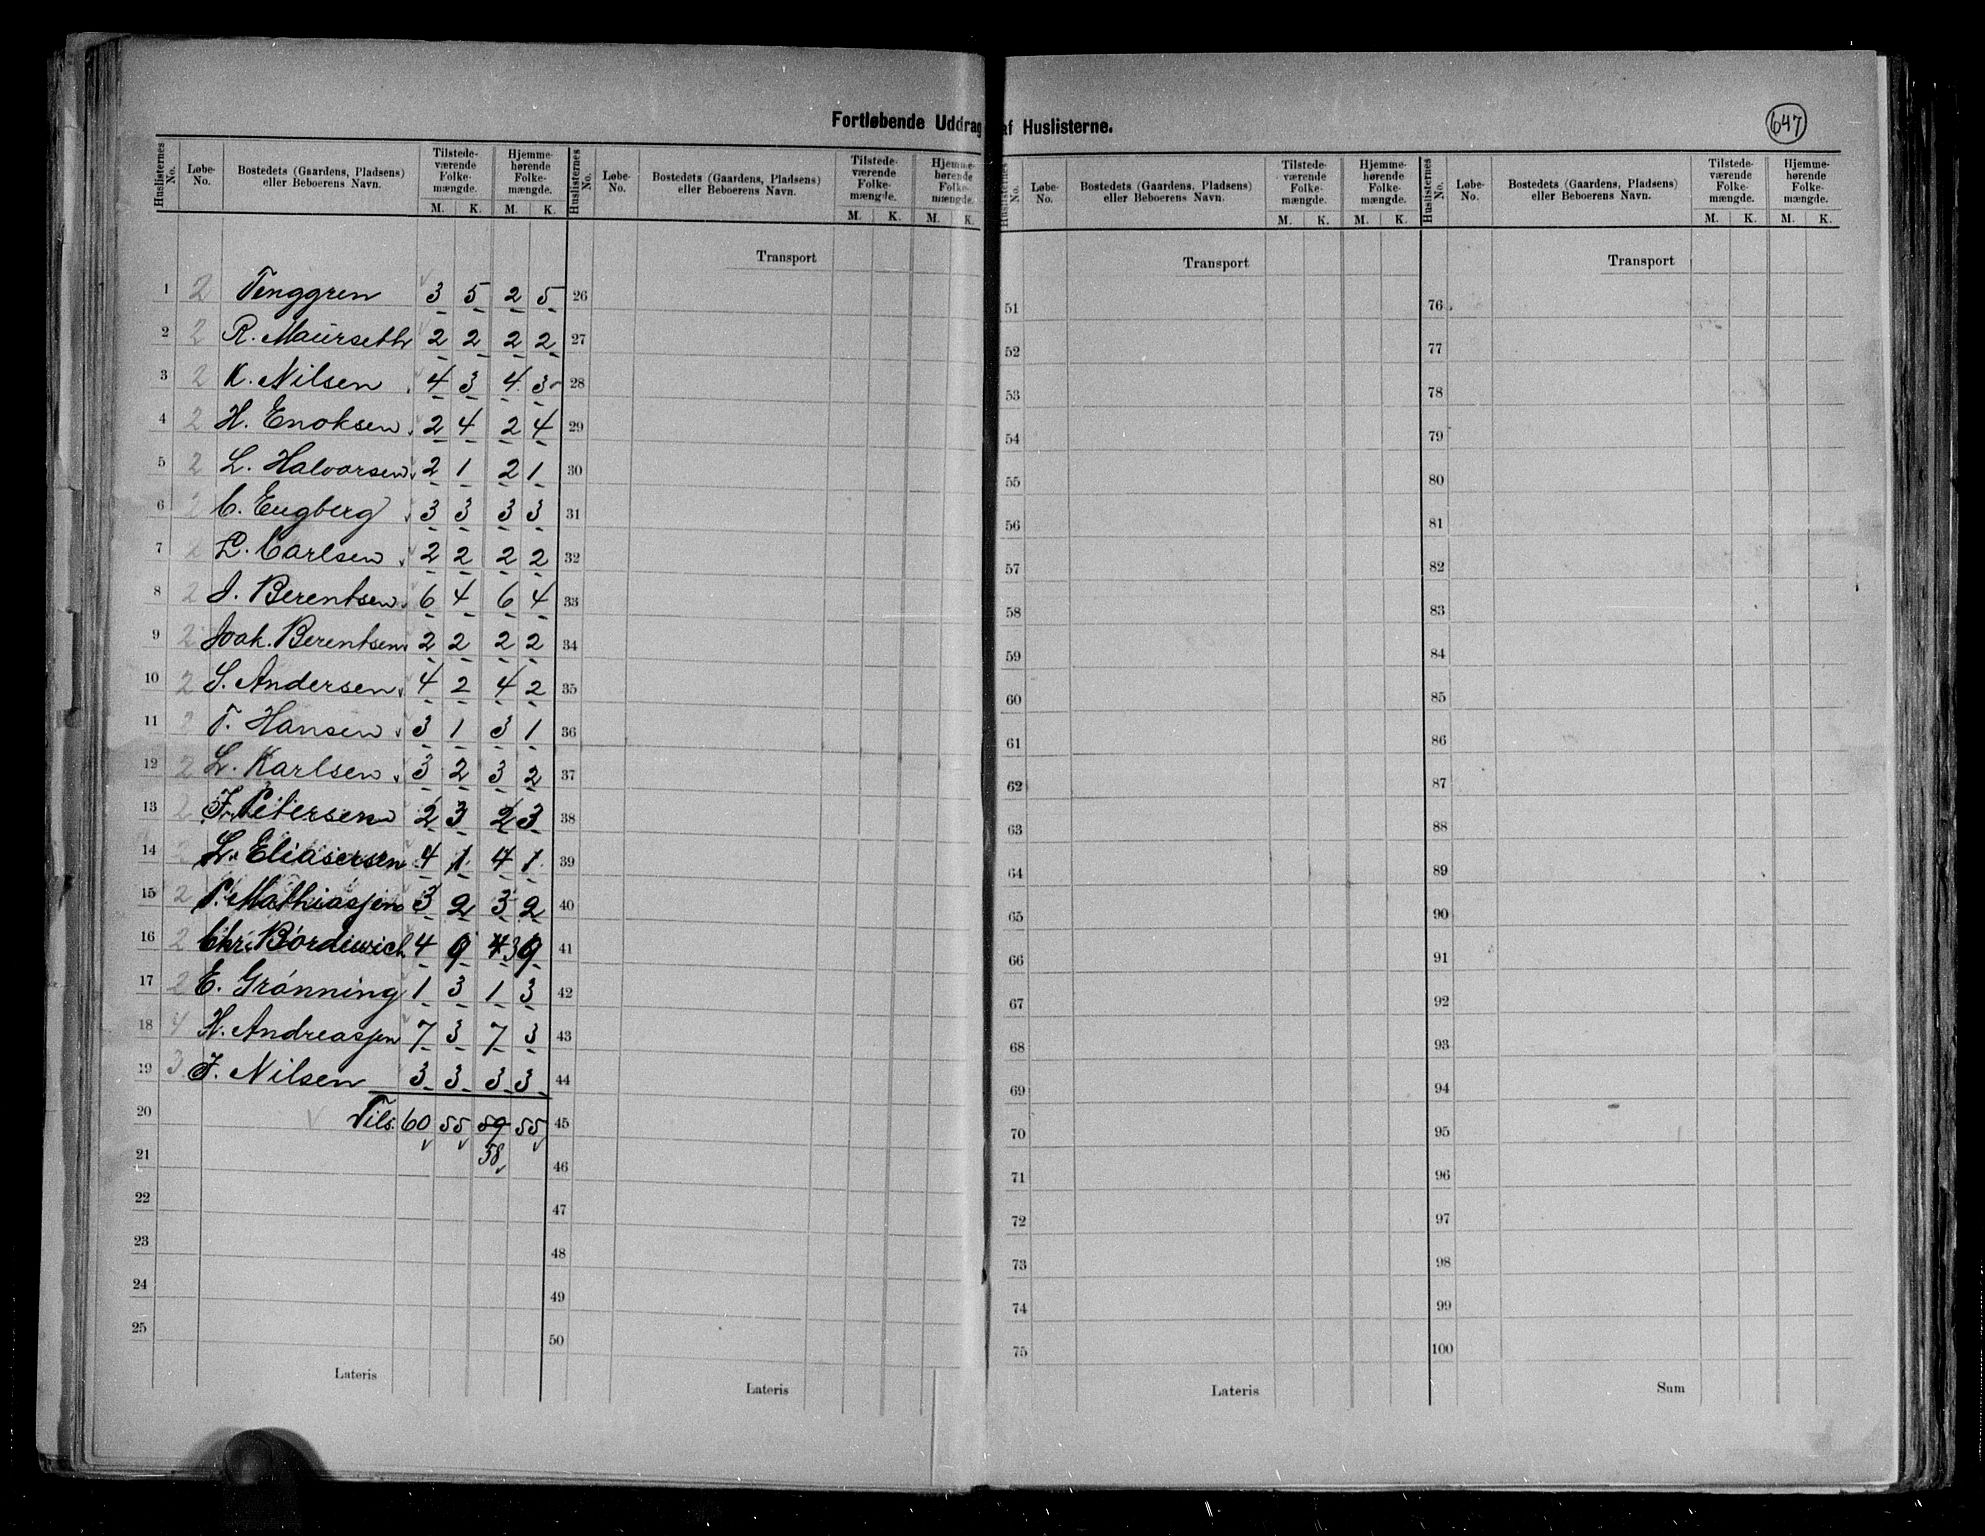 Fortløbende Uddrag af Huslisterne.
647
Huslisternes No. Løbe-No. Bostedets (Gaardens, Pladsens) eller Beboerens Navn. Tilstedeværende Folkemængde. M. K. Hjemmehørende Folkemængde. M. K.
Huslisternes No. Løbe-No. Bostedets (Gaardens, Pladsens) eller Beboerens Navn. Tilstedeværende Folkemængde. M. K. Hjemmehørende Folkemængde. M. K.
Huslisternes No. Løbe-No. Bostedets (Gaardens, Pladsens) eller Beboerens Navn. Tilstedeværende Folkemængde. M. K. Hjemmehørende Folkemængde. M. K.
Huslisternes No. Løbe-No. Bostedets (Gaardens, Pladsens) eller Beboerens Navn. Tilstedeværende Folkemængde. M. K. Hjemmehørende Folkemængde. M. K.
1 2 Tenggren 3 5 2 5
2 2 R. Maurseth 2 2 2 2
3 2 K. Nilsen 4 3 4 3
4 2 H. Enoksen 2 4 2 4
5 2 L. Halvorsen 2 1 2 1
6 2 C. Engberg 3 3 3 3
7 2 L. Carlsen 2 2 2 2
8 2 J. Berentsen 6 4 6 4
9 2 Joak. Berentsen 2 2 2 2
10 2 S. Andersen 4 2 4 2
11 2 T. Hansen 3 1 3 1
12 2 L. Karlsen 3 2 3 2
13 2 Fr. Petersen 2 3 2 3
14 2 L. Eliasersen 4 1 4 1
15 2 P. Mathiasjen 3 2 3 2
16 2 Chr. Bordewich 4 9 4 3 9
17 2 E. Grønning 1 3 1 3
18 4 H. Andreasjen 7 3 7 3
19 3 J. Nilsen 3 3 3 3
20 Tils. 60 55 59 55
21 58
22
23
24
25
Lateris
Transport
26
27
28
29
30
31
32
33
34
35
36
37
38
39
40
41
42
43
44
45
46
47
48
49
50
Lateris
Transport
51
52
53
54
55
56
57
58
59
60
61
62
63
64
65
66
67
68
69
70
71
72
73
74
75
Lateris
Transport
76
77
78
79
80
81
82
83
84
85
86
87
88
89
90
91
92
93
94
95
96
97
98
99
100
Sum